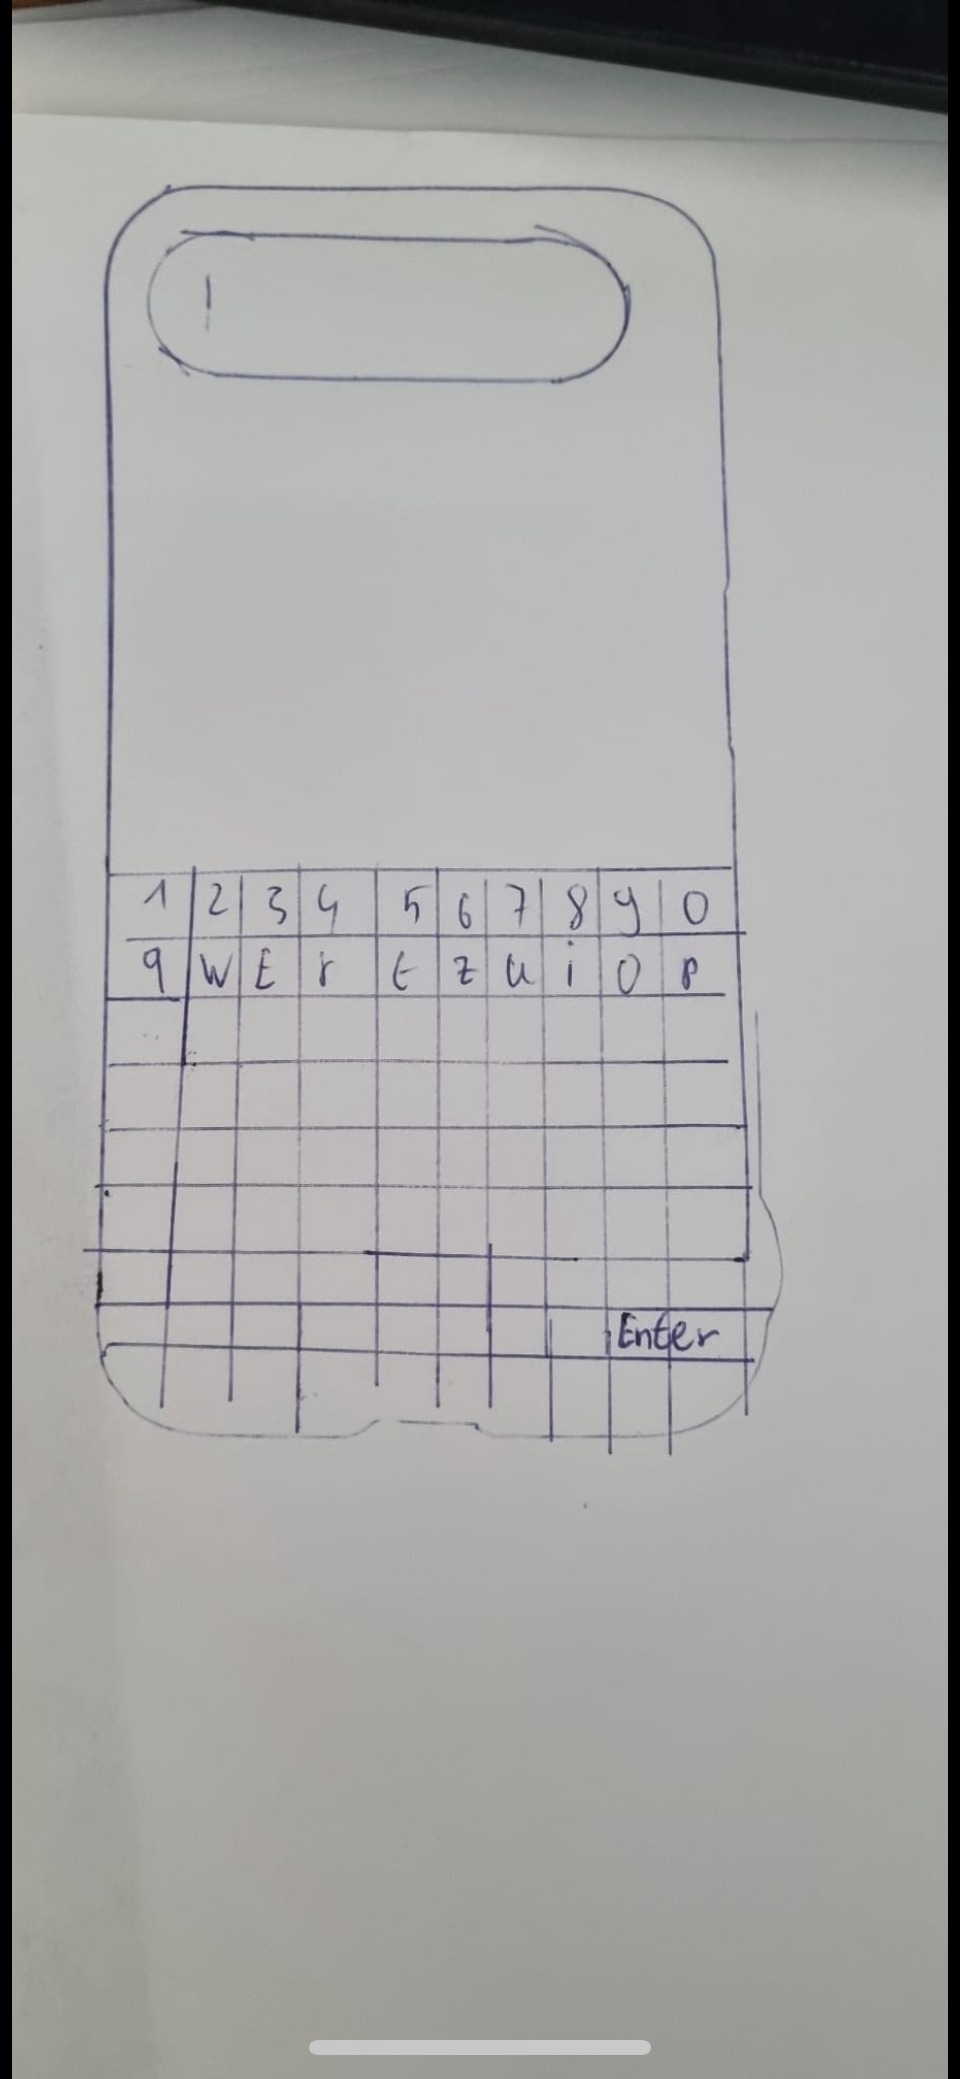 1 2 3 4 5 6 7 8 9 0
q W E r t z u i o p
Enter